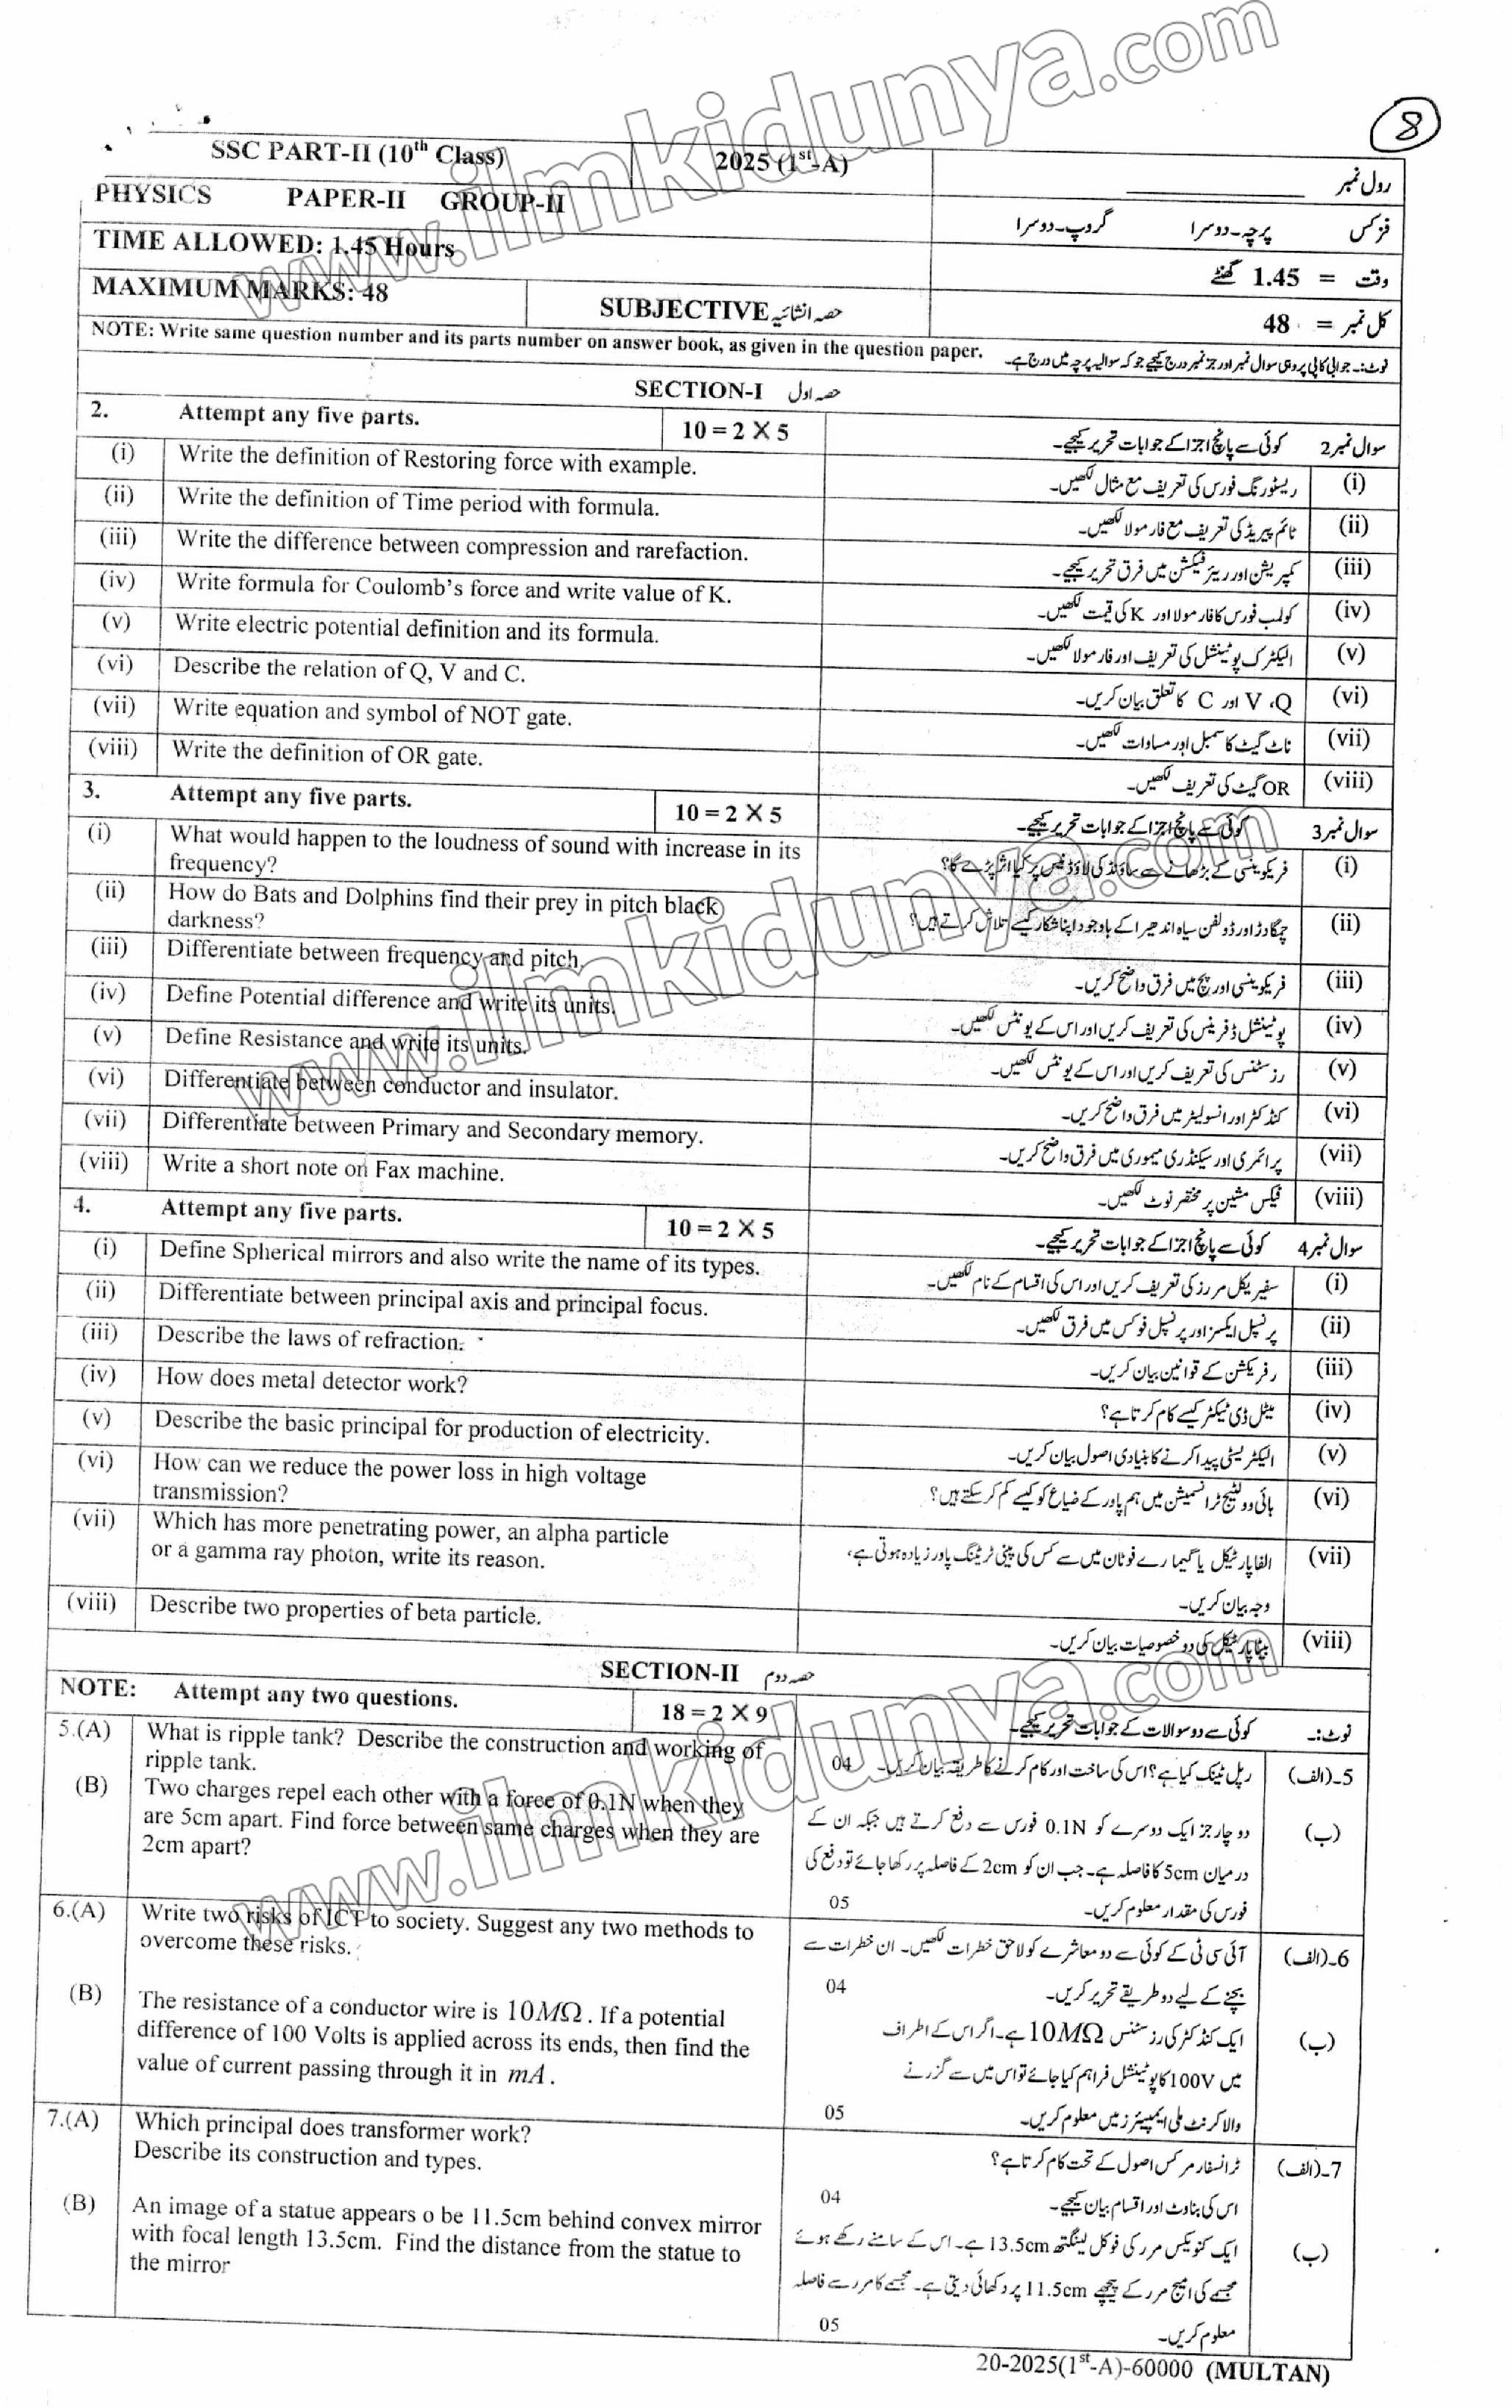 www.ilmkidunya.com
8
SSC PART-II (10th Class)
2025 (1st-A)
رول نمبر
PHYSICS PAPER-II GROUP-II
فزکس پرچہ۔دوسرا گروپ۔دوسرا
TIME ALLOWED: 1.45 Hours
وقت = 1.45 گھنٹے
MAXIMUM MARKS: 48
SUBJECTIVE حصہ انشائیہ
کل نمبر = 48
NOTE: Write same question number and its parts number on answer book, as given in the question paper.
نوٹ:۔ جوابی کاپی پر وہی سوال نمبر اور جز نمبر درج کیجیے جو کہ سوالیہ پرچہ میں درج ہے۔
SECTION-I حصہ اول
2. Attempt any five parts. 10 = 2 X 5
سوال نمبر 2 کوئی سے پانچ اجزا کے جوابات تحریر کیجیے۔
(i) Write the definition of Restoring force with example.
(i) ریسٹورنگ فورس کی تعریف مع مثال لکھیں۔
(ii) Write the definition of Time period with formula.
(ii) ٹائم پیریڈ کی تعریف مع فارمولا لکھیں۔
(iii) Write the difference between compression and rarefaction.
(iii) کمپریشن اور ریئرفیکشن میں فرق تحریر کیجیے۔
(iv) Write formula for Coulomb's force and write value of K.
(iv) کولمب فورس کا فارمولا اور K کی قیمت لکھیں۔
(v) Write electric potential definition and its formula.
(v) الیکٹرک پوٹینشل کی تعریف اور فارمولا لکھیں۔
(vi) Describe the relation of Q, V and C.
(vi) Q، V اور C کا تعلق بیان کریں۔
(vii) Write equation and symbol of NOT gate.
(vii) ناٹ گیٹ کا سمبل اور مساوات لکھیں۔
(viii) Write the definition of OR gate.
(viii) OR گیٹ کی تعریف لکھیں۔
3. Attempt any five parts. 10 = 2 X 5
سوال نمبر 3 کوئی سے پانچ اجزا کے جوابات تحریر کیجیے۔
(i) What would happen to the loudness of sound with increase in its
frequency?
(i) فریکوینسی کے بڑھانے سے ساؤنڈ کی لاؤڈنیس پر کیا اثر پڑے گا؟
(ii) How do Bats and Dolphins find their prey in pitch black
darkness?
(ii) چمگادڑ اور ڈولفن سیاہ اندھیرا کے باوجود اپنا شکار کیسے تلاش کرتے ہیں؟
(iii) Differentiate between frequency and pitch.
(iii) فریکوینسی اور پچ میں فرق واضح کریں۔
(iv) Define Potential difference and write its units.
(iv) پوٹینشل ڈفرینس کی تعریف کریں اور اس کے یونٹس لکھیں۔
(v) Define Resistance and write its units.
(v) رزسٹنس کی تعریف کریں اور اس کے یونٹس لکھیں۔
(vi) Differentiate between conductor and insulator.
(vi) کنڈکٹر اور انسولیٹر میں فرق واضح کریں۔
(vii) Differentiate between Primary and Secondary memory.
(vii) پرائمری اور سیکنڈری میموری میں فرق واضح کریں۔
(viii) Write a short note on Fax machine.
(viii) فیکس مشین پر مختصر نوٹ لکھیں۔
4. Attempt any five parts. 10 = 2 X 5
سوال نمبر 4 کوئی سے پانچ اجزا کے جوابات تحریر کیجیے۔
(i) Define Spherical mirrors and also write the name of its types.
(i) سفیریکل مررز کی تعریف کریں اور اس کی اقسام کے نام لکھیں۔
(ii) Differentiate between principal axis and principal focus.
(ii) پرنسپل ایکسز اور پرنسپل فوکس میں فرق لکھیں۔
(iii) Describe the laws of refraction.
(iii) رفریکشن کے قوانین بیان کریں۔
(iv) How does metal detector work?
(iv) میٹل ڈی ٹیکٹر کیسے کام کرتا ہے؟
(v) Describe the basic principal for production of electricity.
(v) الیکٹریسٹی پیدا کرنے کا بنیادی اصول بیان کریں۔
(vi) How can we reduce the power loss in high voltage
transmission?
(vi) ہائی وولٹیج ٹرانسمیشن میں ہم پاور کے ضیاع کو کیسے کم کر سکتے ہیں؟
(vii) Which has more penetrating power, an alpha particle
or a gamma ray photon, write its reason.
(vii) الفا پارٹیکل یا گیما رے فوٹان میں سے کس کی پینی ٹریٹنگ پاور زیادہ ہوتی ہے،
وجہ بیان کریں۔
(viii) Describe two properties of beta particle.
(viii) بیٹا پارٹیکل کی دو خصوصیات بیان کریں۔
SECTION-II حصہ دوم
NOTE: Attempt any two questions. 18 = 2 X 9
نوٹ:۔ کوئی سے دو سوالات کے جوابات تحریر کیجیے۔
5.(A) What is ripple tank? Describe the construction and working of
ripple tank.
5۔(الف) رپل ٹینک کیا ہے؟ اس کی ساخت اور کام کرنے کا طریقہ بیان کریں۔ 04
(B) Two charges repel each other with a force of 0.1N when they
are 5cm apart. Find force between same charges when they are
2cm apart?
(ب) دو چارجز ایک دوسرے کو 0.1N فورس سے دفع کرتے ہیں جبکہ ان کے
درمیان 5cm کا فاصلہ ہے۔ جب ان کو 2cm کے فاصلہ پر رکھا جائے تو دفع کی
فورس کی مقدار معلوم کریں۔ 05
6.(A) Write two risks of ICT to society. Suggest any two methods to
overcome these risks.
6۔(الف) آئی سی ٹی کے کوئی سے دو معاشرے کو لاحق خطرات لکھیں۔ ان خطرات سے
بچنے کے لیے دو طریقے تحریر کریں۔ 04
(B) The resistance of a conductor wire is 10MΩ. If a potential
difference of 100 Volts is applied across its ends, then find the
value of current passing through it in mA.
(ب) ایک کنڈکٹر کی رزسٹنس 10MΩ ہے۔ اگر اس کے اطراف
میں 100V کا پوٹینشل فراہم کیا جائے تو اس میں سے گزرنے
والا کرنٹ ملی ایمپیئرز میں معلوم کریں۔ 05
7.(A) Which principal does transformer work?
Describe its construction and types.
7۔(الف) ٹرانسفارمر کس اصول کے تحت کام کرتا ہے؟
اس کی بناوٹ اور اقسام بیان کیجیے۔ 04
(B) An image of a statue appears o be 11.5cm behind convex mirror
with focal length 13.5cm. Find the distance from the statue to
the mirror
(ب) ایک کنویکس مرر کی فوکل لینگتھ 13.5cm ہے۔ اس کے سامنے رکھے ہوئے
مجسمے کی امیج مرر کے پیچھے 11.5cm پر دکھائی دیتی ہے۔ مجسمے کا مرر سے فاصلہ
معلوم کریں۔ 05
20-2025(1st-A)-60000 (MULTAN)